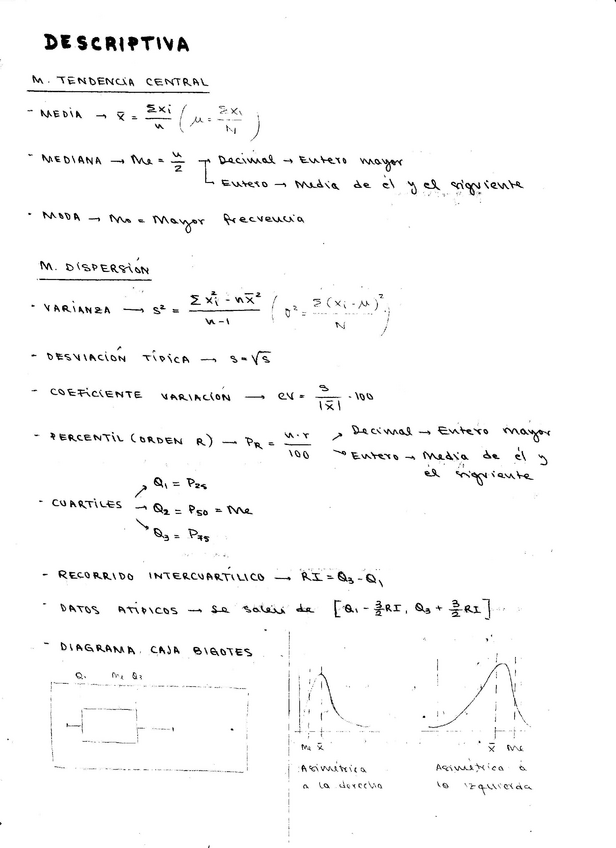 DESCRIPTIVA
M. TENDENCIA CENTRAL
- MEDIA → x̄ = Σxi/n (μ = Σxi/N)
- MEDIANA → Me = n/2 → Decimal → Entero mayor
→ Entero → Media de él y el siguiente
- MODA → Mo = Mayor frecuencia
M. DISPERSIÓN
- VARIANZA → S² = (Σxi² - nx̄²)/(n-1) (σ² = Σ(xi-μ)²/N)
- DESVIACIÓN TÍPICA → s=√s
- COEFICIENTE VARIACIÓN → CV = s/|x̄| · 100
- PERCENTIL (ORDEN R) → PR = n·r/100 → Decimal → Entero mayor
→ Entero → Media de él y
él siguiente
Q1 = P25
- CUARTILES → Q2 = P50 = Me
Q3 = P75
- RECORRIDO INTERCUARTÍLICO → RI = Q3 - Q1
- DATOS ATÍPICOS → Se salen de [Q1 - 3/2 RI, Q3 + 3/2 RI]
- DIAGRAMA CAJA BIGOTES
Me Q3
Me x̄
x̄ Me
Asimétrica
a la derecha
Asimétrica a
la izquierda